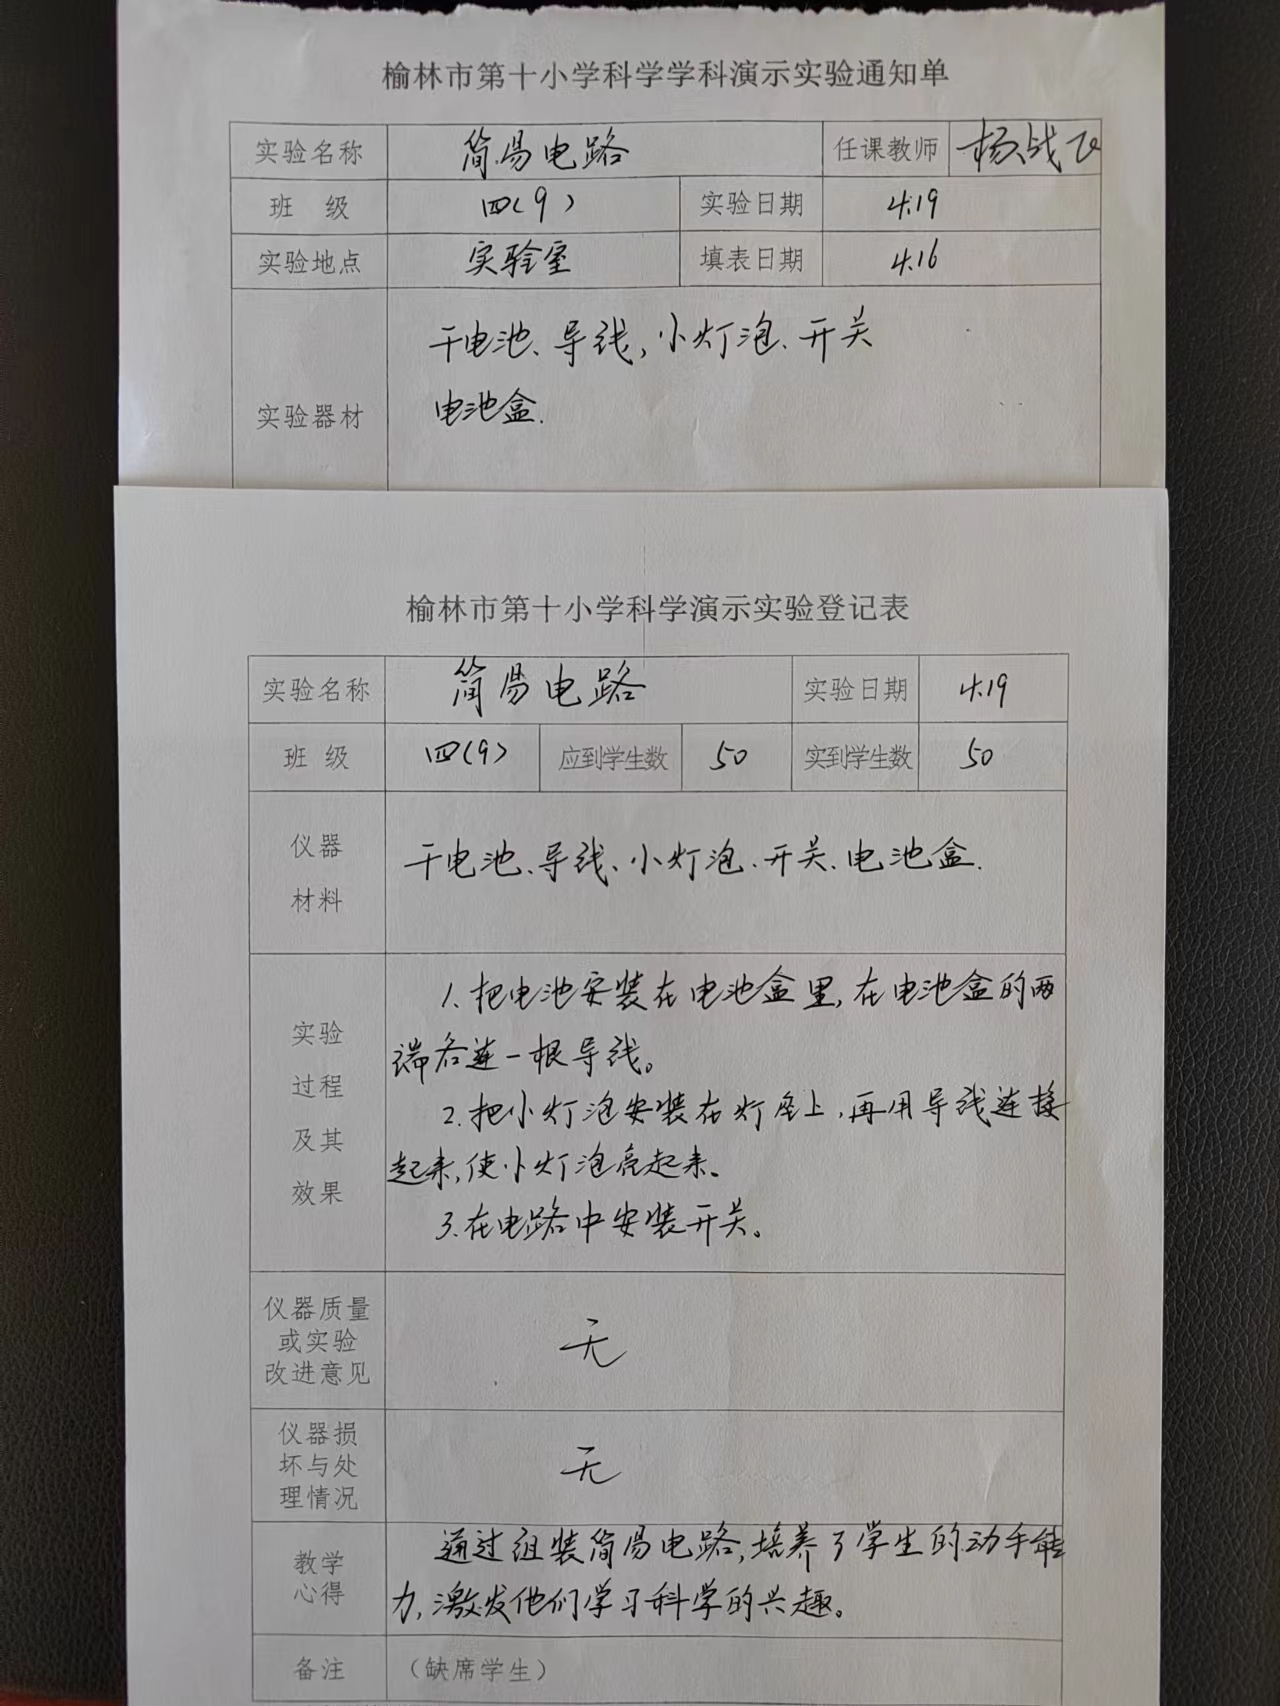 榆林市第十小学科学学科演示实验通知单
实验名称 简易电路 任课教师 杨战飞
班 级 四(9) 实验日期 4.19
实验地点 实验室 填表日期 4.16
干电池、导线,小灯泡、开关
实验器材
电池盒.
榆林市第十小学科学演示实验登记表
实验名称 简易电路 实验日期 4.19
班 级 四(9) 应到学生数 50 实到学生数 50
仪器
材料
干电池、导线、小灯泡、开关、电池盒.
实验
过程
及其
效果
1.把电池安装在电池盒里,在电池盒的两
端各连一根导线。
2.把小灯泡安装在灯座上,再用导线连接
起来,使小灯泡亮起来。
3.在电路中安装开关。
仪器质量
或实验
改进意见
无
仪器损
坏与处
理情况
无
教学
心得
通过组装简易电路,培养了学生的动手能
力,激发他们学习科学的兴趣。
备注 (缺席学生)